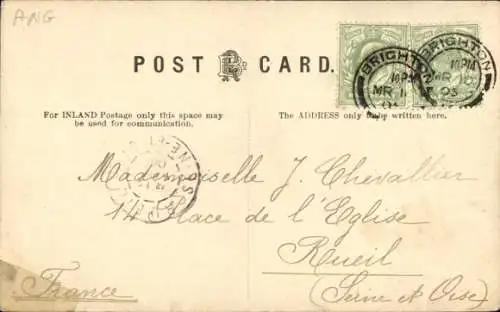 ANG
POST CARD.
BRIGHTON
BRIGHTON
MR 11
03
For INLAND Postage only this space may
be used for communication.
The ADDRESS only to be written here.
Mademoiselle J. Chevallier
14 Place de l'Eglise
Rueil
(Seine et Oise)
France